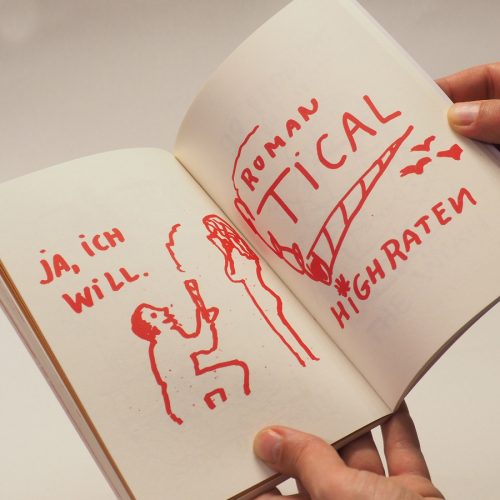 JA, iCH
WiLL.
ROMAN
TiCAL
*HiGHRATEN